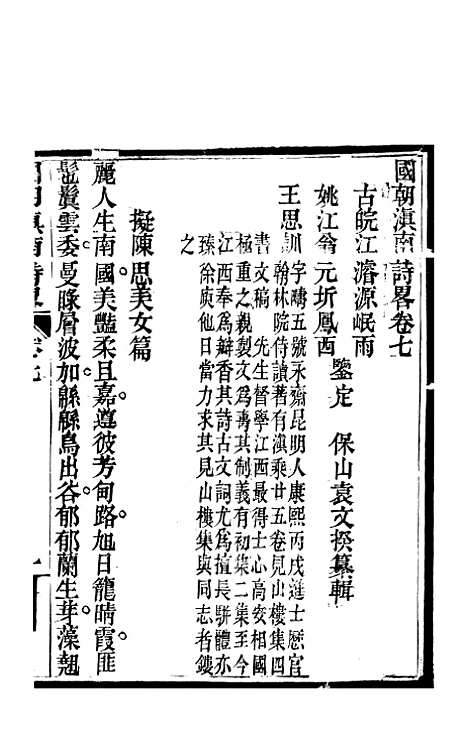 國朝滇南詩畧卷七
古皖江濬源岷雨
姚江翁元圻鳳西
鑒定 保山袁文揆纂輯
王思訓
字疇五號永齋昆明人康熙丙戌進士歷官
翰林院侍讀著有滇乘廿五卷見山樓集四
書文稿 先生督學江西最得士心高安相國
極重之親製文為壽其制義有初集二集至今
江西奉為瓣香其詩古文詞尤為擅長駢體亦
臻徐庾他日當力求其見山樓集與同志者鏤
之
擬陳思美女篇
麗人生南國美豔柔且嘉遵彼芳甸路旭日籠晴霞匪
髢鬒雲委曼睩層波加緜緜鳥出谷郁郁蘭生芽藻翹